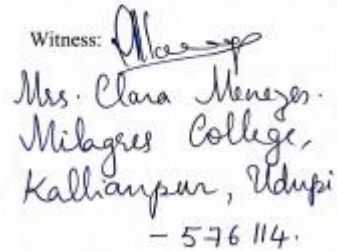 Witness:
Mrs. Clara Menezes.
Milagres College,
Kallianpur, Udupi
- 576 114.